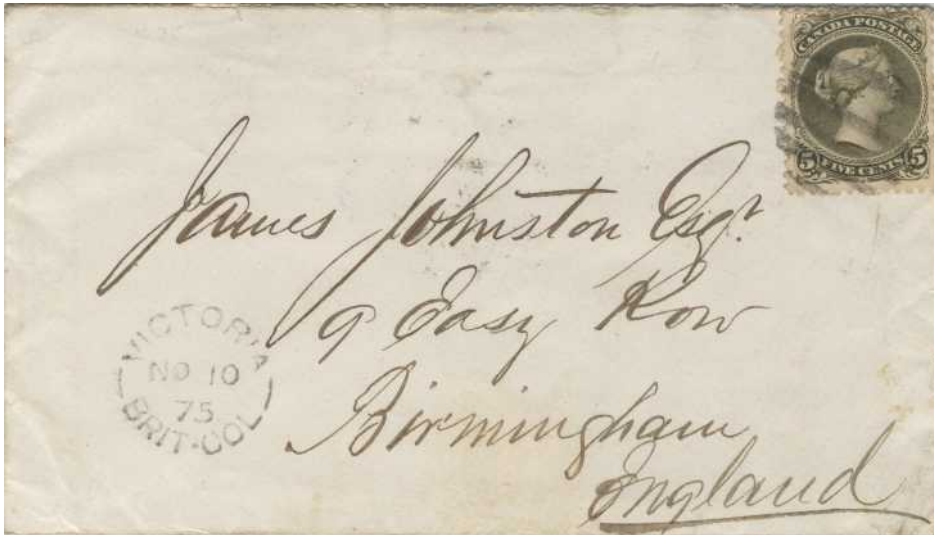 CANADA POSTAGE
5 FIVE CENTS 5
James Johnston Esqr.
9 Easy Row
Birmingham
England
VICTORIA
NO 10
75
BRIT-COL